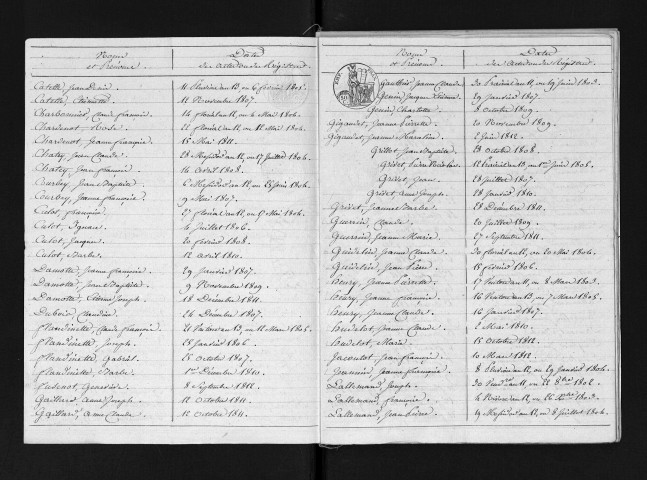 Noms et Prénoms
Dates des Actes ou des Registres
Catelle, Jean Denis 11 Pluviose an 13, ou 6 février 1805.
Catelle, Etiennette 11 Novembre 1807.
Charbonnier, Claude françois 14 floréal an 12, ou 4 Mai 1804.
Chardenot, Nicole 22 floréal an 12, ou 12 Mai 1804.
Chardenot, Jeanne françoise 15 Mai 1811.
Chatey, Jean Claude 28 Messidor an 12, ou 17 Juillet 1804.
Chatey, Jean françois 16 avril 1808.
Courbey, Jean Baptiste 6 Messidor an 12, ou 25 Juin 1804.
Courbey, Jeanne françoise 9 Mai 1807.
Culot, françoise 27 floréal an 12, ou 17 Mai 1804.
Culot, Ignace 4 Juillet 1806.
Culot, Jacques 20 février 1808.
Culot, Barbe 12 avril 1810.
Damotte, Jeanne françoise 29 Janvier 1807.
Damotte, Jean Baptiste 9 Novembre 1809.
Damotte, Etienne Joseph 18 Décembre 1811.
Dubois, Claudine 26 Décembre 1807.
flandinette, Claude françois
flandinette, Joseph 25 Janvier 1806.
flandinette, Gabriel 15 Octobre 1807.
flandinette, Barbe 1er Décembre 1810.
Genevieve 18 Septembre 1812.
Gaillard, Anne Joseph 12 Octobre 1811.
Gaillard, Anne Claude 12 Octobre 1811.
Noms et Prénoms
Dates des Actes ou des Registres
Gauthier, Jeanne Claude 30 Prairial an 11, ou 19 Juin 1803.
Genin, Jacques Etienne 29 Janvier 1807.
Genin, Charlotte 8 Octobre 1809.
Gigandet, Jeanne Pierrette 20 Novembre 1809.
Gigandet, Jeanne 2 Juin 1812.
Grillet, Jean Baptiste 28 Octobre 1808.
Grivet, Pierre Nicolas 12 Prairial an 13, ou 1er Juin 1805.
Grivet, Jean 28 Juillet 1807.
Grivet, Anne Joseph 28 Janvier 1810.
Grivet, Jeanne Barbe 28 Décembre 1811.
Guerrin, Claude 20 Juillet 1809.
Guerrin, Jeanne Marie 27 Septembre 1811.
Guidelin, Jeanne Claude 30 floréal an 12, ou 20 Mai 1804.
Guidelin, Jean Pierre 15 février 1806.
henry, Jeanne Pierrette 17 Ventose an 11, ou 8 Mars 1803.
henry, Jeanne françoise 16 Ventose an 13, ou 7 Mars 1805.
henry, Jeanne Claude 16 Janvier 1807.
hudelot, Jeanne Claude 2 Mai 1810.
hudelot, Marie 15 Octobre 1812.
Jacoutot, Jean françois 10 Mars 1812.
Jeanne françoise 8 Pluviose an 12, ou 29 Janvier 1804.
Lallemand, Joseph 30 Vendre an 11, ou 22 8bre 1802.
Lallemand, françoise
Lallemand, Jean Pierre 19 Messidor an 12, ou 8 Juillet 1804.